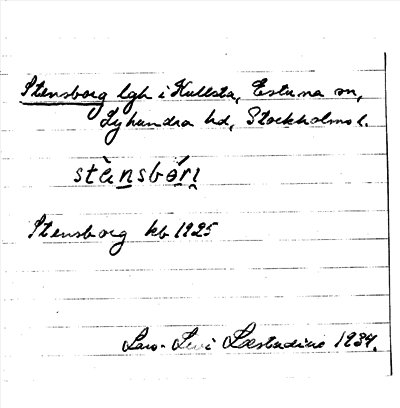 Stensborg lgh i Kullsta, Estuna sn,
Lyhundra hd, Stockholms l.
stènsbór̨i̯
Stensborg kb 1925
Lars-Levi Læstadius 1934.